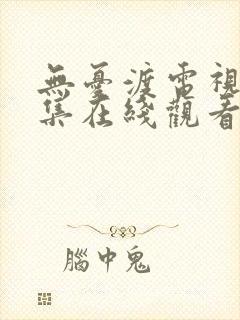 無憂渡電視
集在綫觀看
腦中鬼